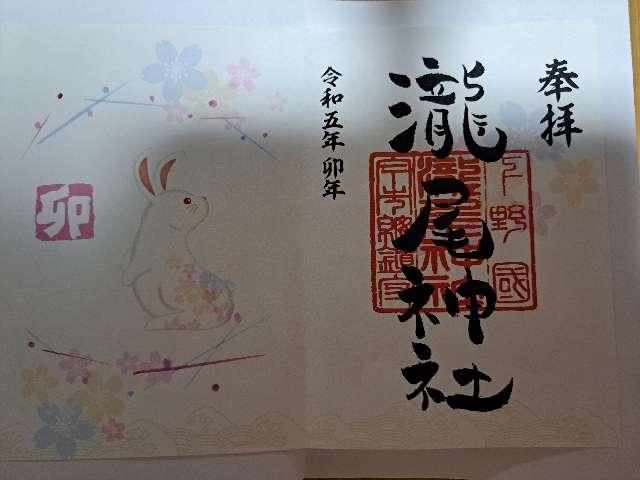 奉拝
瀧尾神社
下野國
瀧尾神社
今市總鎮守
令和五年 卯年
卯